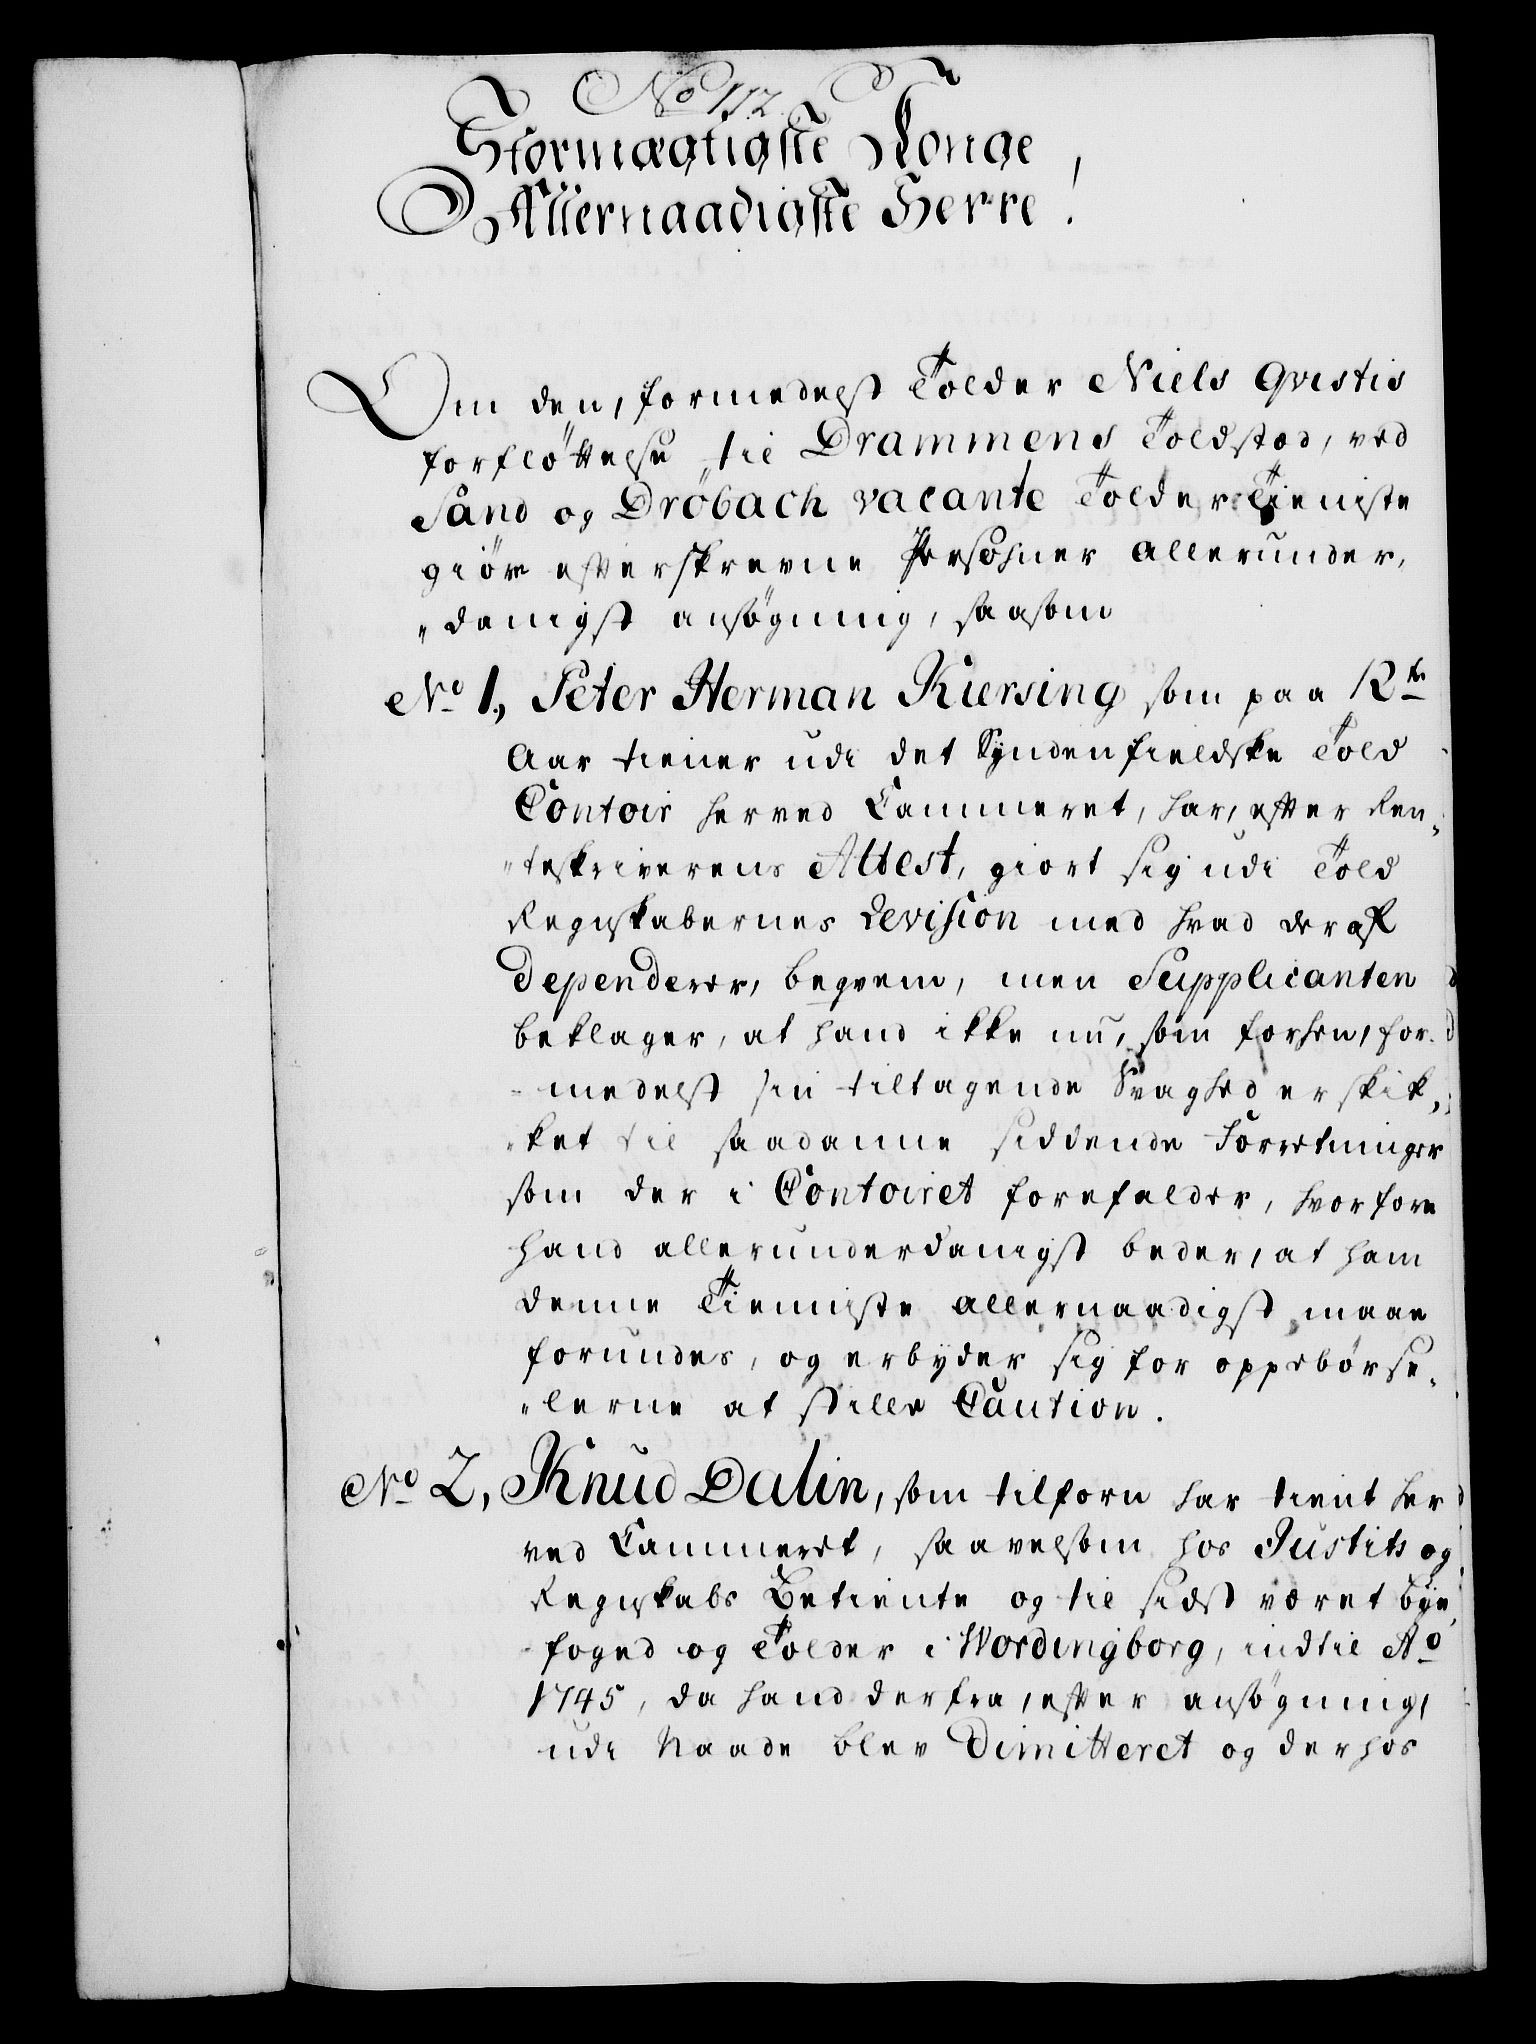 No 112.
Stormægtigste Konge,
Allernaadigste Herre!
Om den, formedelst Tolder Niels Qvistis
forflöttelse til Drammens Toldstæd, ved
Sand og Dröbach vacante Tolder Tieniste
giöre efterskrevne Persohner allerunder,
"danigst ansögning, saasom
No 1, Peter Herman Kiersing som paa 12te
Aar tiener udi det Syndenfieldske Told
Contoir herved Cammeret, har, efter Ren,,
"teskriverens Attest, giort sig udi Told
Regnskabernes Revision med hvad deraf
dependerer, beqvem, men Supplicanten
beklager, at hand ikke nu, som forhen, for-
-medelst sin tiltagende Svaghed er skik,,
"ket til saadanne siddende Forretninger
som der i Contoiret forefalder, hvorfore
hand allerunderdanigst beder, at ham
denne Tienniste allernaadigst maae
forundes, og erbyder sig for oppebörse,,
"lerne at stille Caution.
No 2, Knud Dalin, som tilforn har tient her
ved Cammeret, saavelsom hos Justits og
Regnskabs Betiente og til sidst været bye
foged og Tolder i Wordingborg, indtil Ao
1745, da hand derfra, efter ansögning,
udi Naade blev Dimitteret og derhos